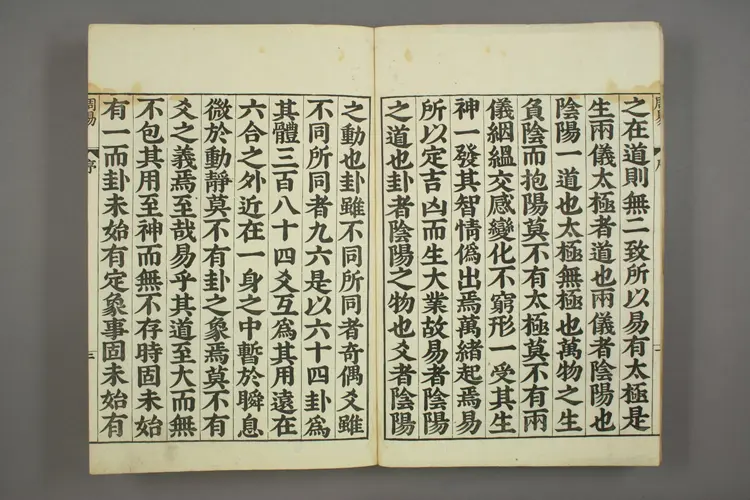 之在道則無二致所以易有太極是
生兩儀太極者道也兩儀者陰陽也
陰陽一道也太極無極也萬物之生
負陰而抱陽莫不有太極莫不有兩
儀絪縕交感變化不窮形一受其生
神一發其智情僞出焉萬緒起焉易
所以定吉凶而生大業故易者陰陽
之道也卦者陰陽之物也爻者陰陽
之動也卦雖不同所同者奇偶爻雖
不同所同者九六是以六十四卦爲
其體三百八十四爻互爲其用遠在
六合之外近在一身之中暫於瞬息
微於動靜莫不有卦之象焉莫不有
爻之義焉至哉易乎其道至大而無
不包其用至神而無不存時固未始
有一而卦未始有定象事固未始有
周易
序